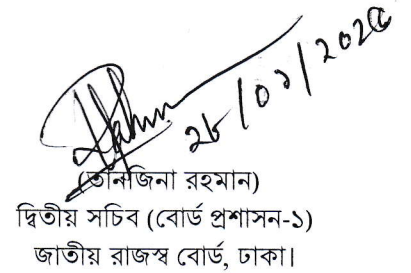 ২৮/০১/২০২৫
(তানজিনা রহমান)
দ্বিতীয় সচিব (বোর্ড প্রশাসন-১)
জাতীয় রাজস্ব বোর্ড, ঢাকা।